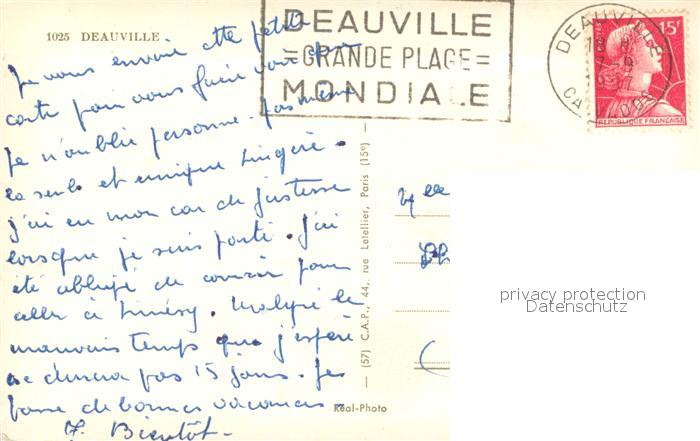 1025 DEAUVILLE
DEAUVILLE
=GRANDE PLAGE=
MONDIALE
DEAUVILLE
CALVADOS
15F
REPUBLIQUE FRANÇAISE
Je vous envoie cette petite
carte pour vous faire voir que
je n'oublie personne. pas même
la seule et unique Lingère.
j'ai eu mon car de justesse
lorsque je suis parti. j'ai
été obligé de courir pour
aller à Limésy. Malgré le
mauvais temps que j'espère
ne durera pas 15 jours. Je
passe de bonnes vacances.
Bientôt.
(57) C.A.P., 44, rue Letellier, Paris (15e)
Réal-Photo
privacy protection
Datenschutz